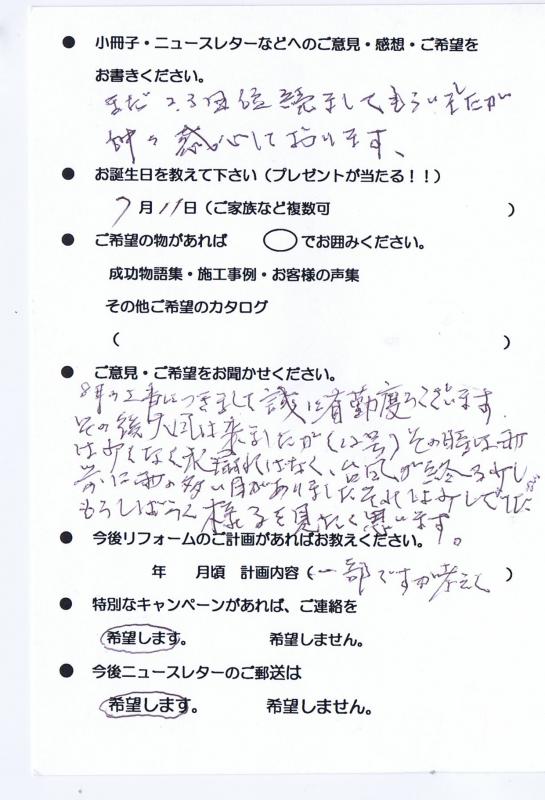 ● 小冊子・ニュースレターなどへのご意見・感想・ご希望を
お書きください。
まだ2.3回位読ましてもらいましたが
時々感心しております、
● お誕生日を教えて下さい(プレゼントが当たる!!)
7月11日(ご家族など複数可 )
● ご希望の物があれば ○でお囲みください。
成功物語集・施工事例・お客様の声集
その他ご希望のカタログ
( )
● ご意見・ご希望をお聞かせください。
8月の工事につきまして誠に有勤度うございます.
その後 は来ましたが(12号)その時は雨
は少くなく水漏れはなく、台風が終る少し
前に雨の多い日がありましたそれは少しでした
もうしばらく様子を見たく思います。
● 今後リフォームのご計画があればお教えください。
年 月頃 計画内容(一部ですが考えて )
● 特別なキャンペーンがあれば、ご連絡を
希望します。 希望しません。
● 今後ニュースレターのご郵送は
希望します。 希望しません。